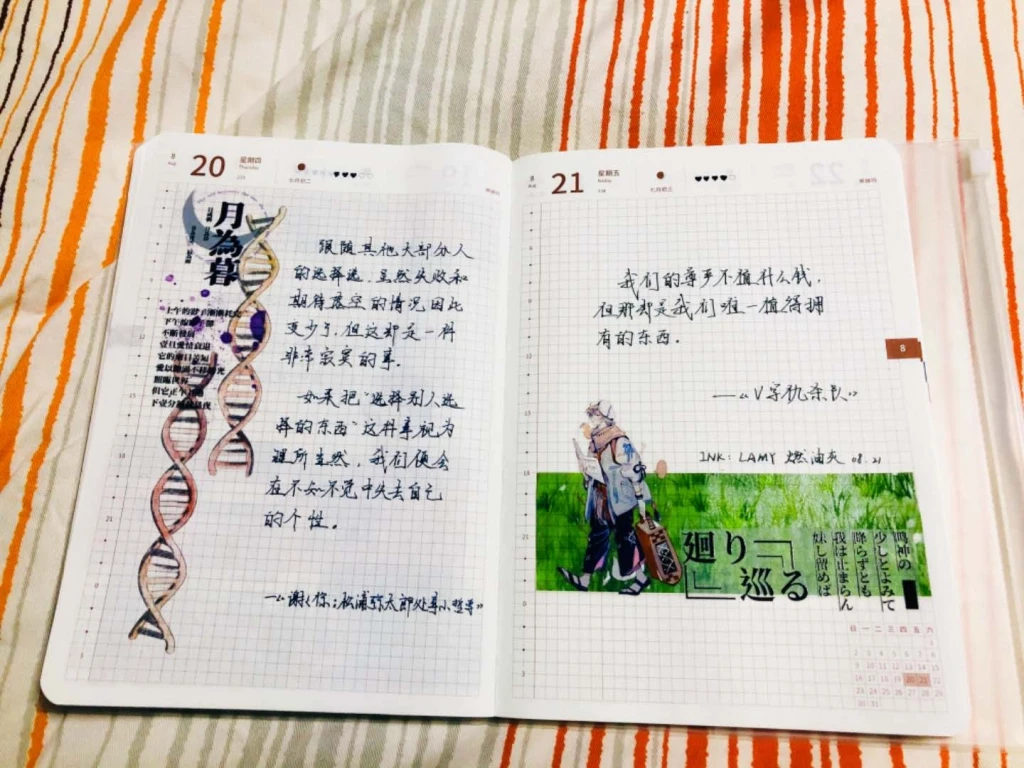 8
Aug
20
星期四
Thursday
七月初二
月為暮
上午的影子漸漸耗完
不斷發育
壹旦愛情衰退
跟随其他大部分人
的选择选,虽然失败和
期待落空的情况因此
变少了,但这却是一种
非常寂寞的事。
如果把“选择别人选
择的东西”这种事视为
理所当然,我们便会
在不知不觉中失去自己
的个性。
—《谢谢你:松浦弥太郎处事小哲学》
8
Aug
21
星期五
Friday
七月初三
我们的尊严不值什么钱,
但那却是我们唯一值得拥
有的东西。
——《V字仇杀队》
INK: LAMY 燃油灰 08.21
8
廻り
巡る
鳴神の
少しとよみて
降らずとも
我は止まらん
妹し留めば
日 一 二 三 四 五 六
1
2 3 4 5 6 7 8
9 10 11 12 13 14 15
16 17 18 19 20 21 22
23 24 25 26 27 28 29
30 31